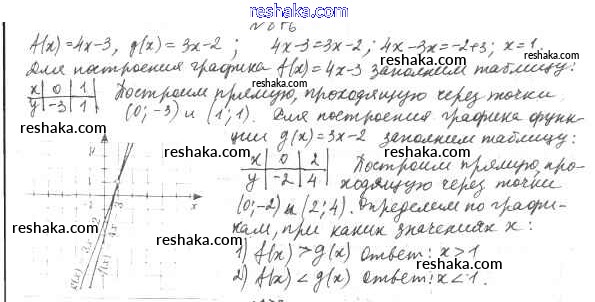 reshaka.com
f(x)=4x-3, g(x)=3x-2; 4x-3=3x-2; 4x-3x=-2+3; x=1.
Для построения графика f(x)=4x-3 заполним таблицу:
x | 0 | 1 Построим прямую, проходящую через точки
y | -3 | 1 (0;-3) и (1;1). Для построения графика функ-
reshaka.com reshaka.com
ции g(x)=3x-2 заполним таблицу:
reshaka.com reshaka.com reshaka.com
x | 0 | 2 Построим прямую, про-
y | -2 | 4 ходящую через точки
reshaka.com reshaka.com
(0;-2) и (2;4). Определяем по графи-
reshaka.com reshaka.com
кам, при каких значениях x:
1) f(x)>g(x) ответ: x>1
reshaka.com
2) f(x)<g(x) ответ: x<1.
reshaka.com reshaka.com
y
x
g(x)=3x-2
f(x)=4x-3